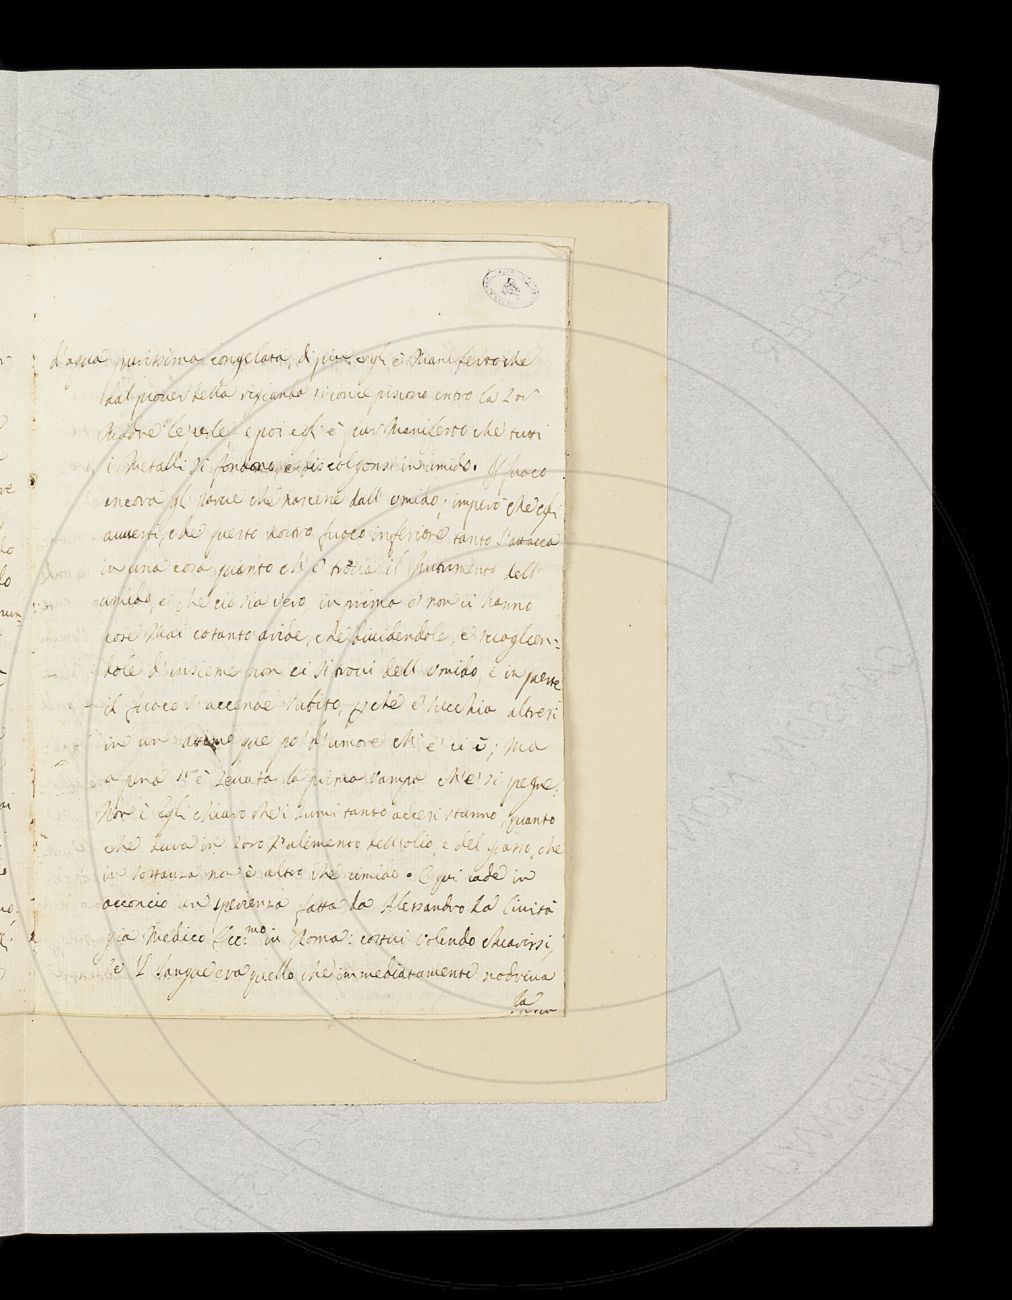 d'aqua purissima congelata, di piu egli è Manifesto che
dal piover della rugiada si conce pisiono entro la Lor
Madre le perle, e poi egli è pur Manifesto che tutti
i Metalli si fondono, e discolgonsi in umido. Il fuoco
ancora gli parve che nascere dall' umido; imperò che egli
avverti, che questo nostro fuoco inferiore tanto s'attacca
in una cosa quanto ch' e' trova il Nutrimento dell'
umido, e che cio sia vero, in prima e' non ci hanno
cose Mai cotanto aride, che dividendole, e sciogliern=
dole d'insieme non ci si trovi dell' umido, e in parte
il fuoco s'accende subito, pche e' succhia altresi
in un attimo que po' d'umore ch' e' ci è; Ma
a pena s'è Levata la prima vampa ch'e' si spegne.
Non è Egli chiaro che i Lumi tanto accesi stanno, quanto
che dura in Loro L'alimento dell'olio, e del grasso, che
in sostanza non è altro che umido. E qui cade in
acconcio un' sperienza fatta da Alessandro La Civita
gia Medico Ecc.mo in Roma: costui volendo chiarirsi,
se 'l sangue era quello che immediatamente nodriva
La